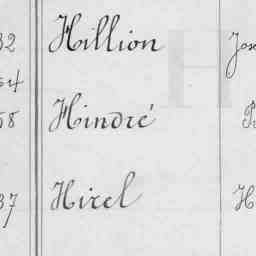 32 Hillion Jos
54
58 Hindré
37 Hirel H